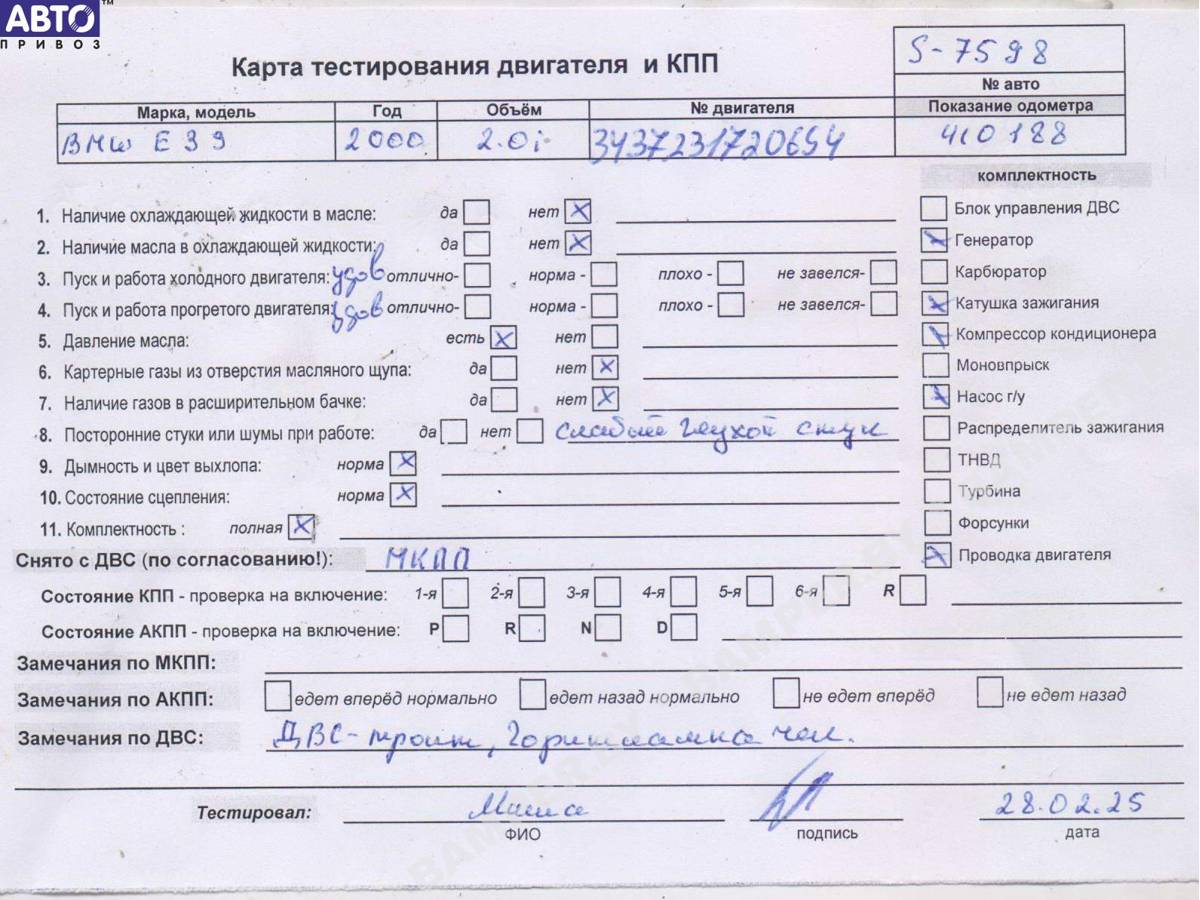 АВТО™
ПРИВОЗ
S-7598
Карта тестирования двигателя и КПП
№ авто
Марка, модель Год Объём № двигателя Показание одометра
BMW E39 2000 2.0i 3437231720654 410188
комплектность
1. Наличие охлаждающей жидкости в масле: да нет X
Блок управления ДВС
2. Наличие масла в охлаждающей жидкости: да нет X
X Генератор
3. Пуск и работа холодного двигателя: удов отлично- норма - плохо - не завелся-
Карбюратор
4. Пуск и работа прогретого двигателя: удов отлично- норма - плохо - не завелся-
X Катушка зажигания
5. Давление масла: есть X нет
X Компрессор кондиционера
6. Картерные газы из отверстия масляного щупа: да нет X
Моновпрыск
7. Наличие газов в расширительном бачке: да нет X
X Насос г/у
8. Посторонние стуки или шумы при работе: да нет слабый глухой стук
Распределитель зажигания
9. Дымность и цвет выхлопа: норма X
ТНВД
10. Состояние сцепления: норма X
Турбина
11. Комплектность : полная X
Форсунки
Снято с ДВС (по согласованию!): МКПП
X Проводка двигателя
Состояние КПП - проверка на включение: 1-я 2-я 3-я 4-я 5-я 6-я R
Состояние АКПП - проверка на включение: P R N D
Замечания по МКПП:
Замечания по АКПП: едет вперёд нормально едет назад нормально не едет вперёд не едет назад
Замечания по ДВС: ДВС-троит, Горит лампа чек.
Тестировал: Миша 28.02.25
ФИО подпись дата
BAMPER.BY